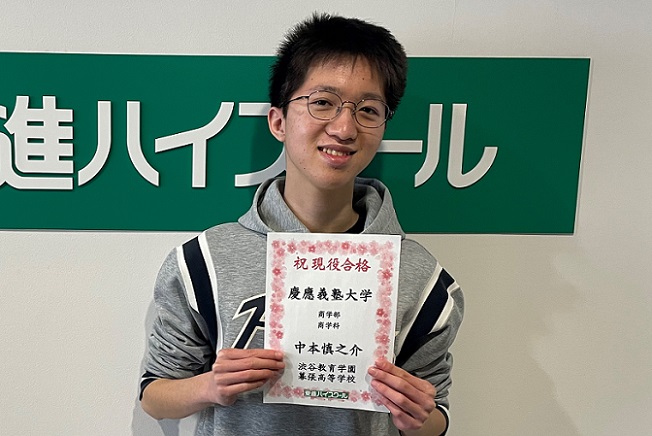 進ハイスクール
祝現役合格
慶應義塾大学
商学部
商学科
中本慎之介
渋谷教育学園
幕張高等学校
東進ハイスクール